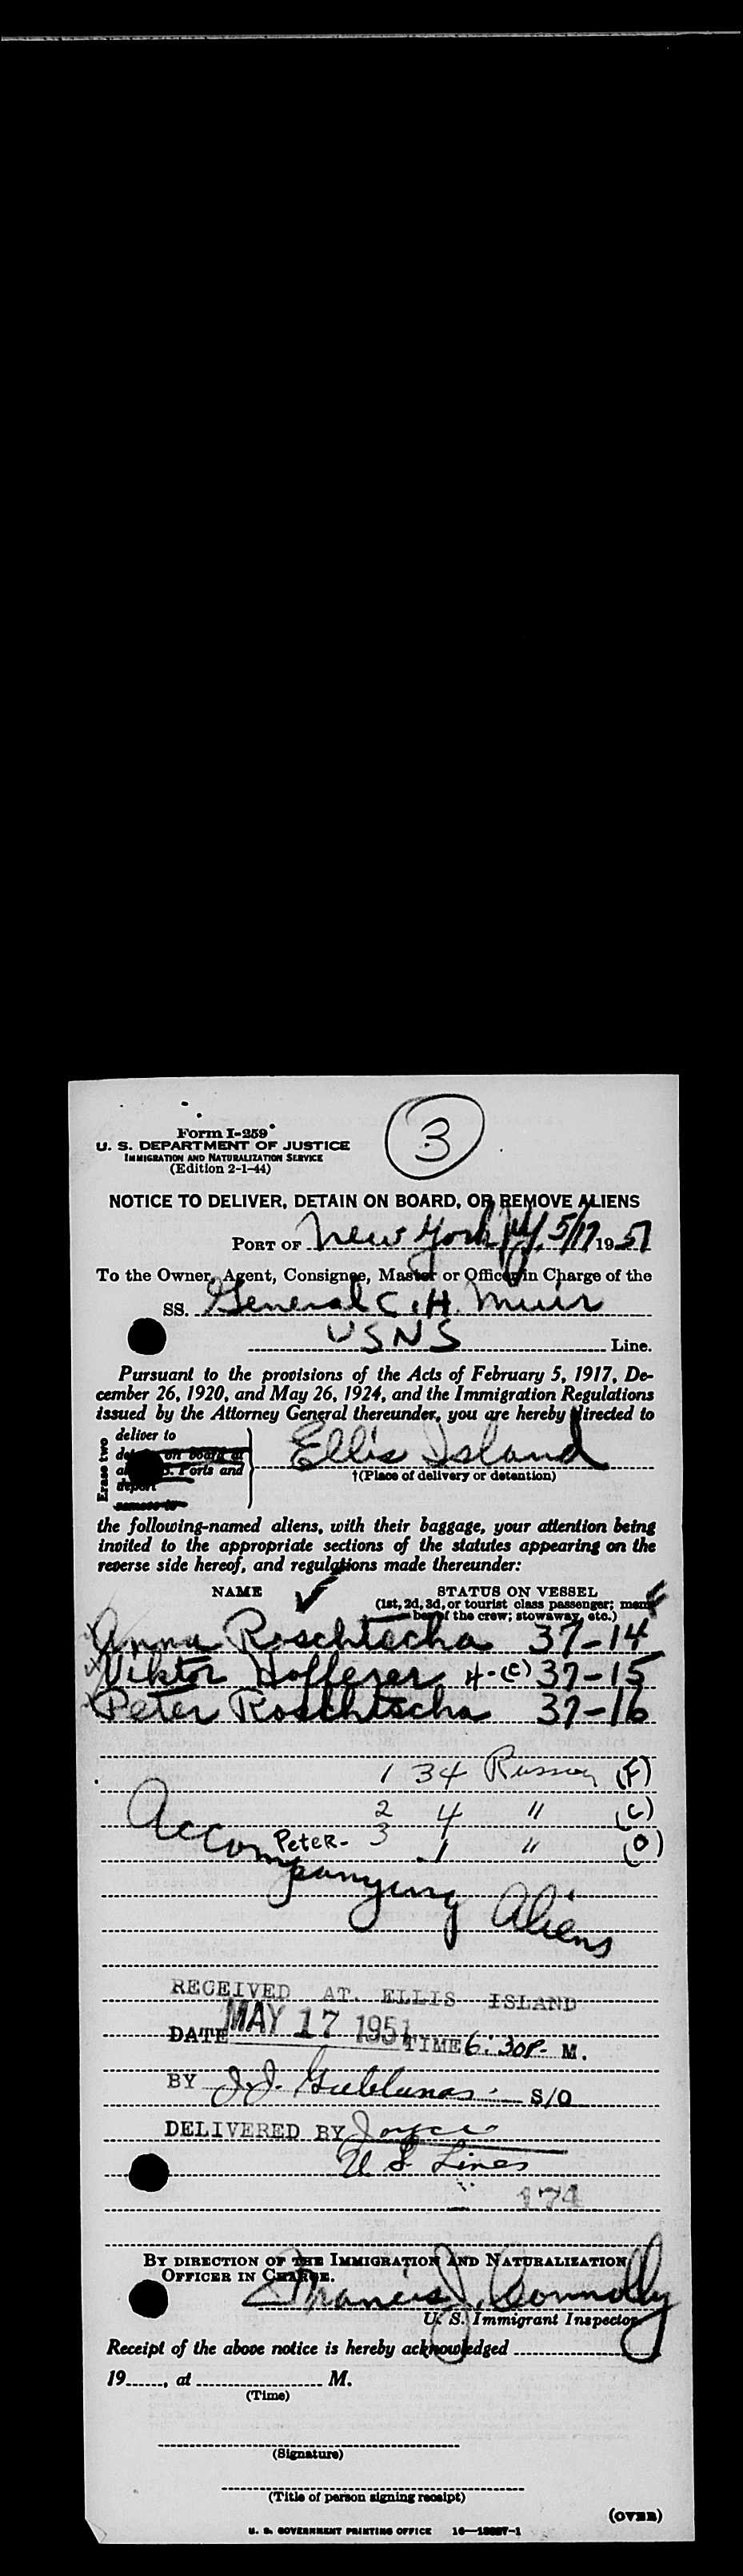 3
Form I-259
U. S. DEPARTMENT OF JUSTICE
IMMIGRATION AND NATURALIZATION SERVICE
(Edition 2-1-44)
NOTICE TO DELIVER, DETAIN ON BOARD, OR REMOVE ALIENS
PORT OF New York NY, 5/17 1951
To the Owner, Agent, Consignee, Master or Officer in Charge of the
SS. General C. H. Muir
USNS Line.
Pursuant to the provisions of the Acts of February 5, 1917, De-
cember 26, 1920, and May 26, 1924, and the Immigration Regulations
issued by the Attorney General thereunder, you are hereby directed to
Erase two
deliver to
on board at
Ports and
deport
remove to
Ellis Island
†(Place of delivery or detention)
the following-named aliens, with their baggage, your attention being
invited to the appropriate sections of the statutes appearing on the
reverse side hereof, and regulations made thereunder:
NAME STATUS ON VESSEL
(1st, 2d, 3d, or tourist class passenger; mem-
ber of the crew; stowaway, etc.)
Anna Roschtscha 37-14
Viktor Hofferer 4-(C) 37-15
Peter Roschtscha 37-16
1 34 (F)
2 4 " (C)
Peter- 3 1 " (O)
Accompanying Aliens
RECEIVED AT. ELLIS ISLAND
DATE MAY 17 1951 TIME 6:30P. M.
BY J.J. S/O
DELIVERED BY Joyce
U S Lines
174
BY DIRECTION OF THE IMMIGRATION AND NATURALIZATION
OFFICER IN CHARGE.
Francis J. Connolly
U. S. Immigrant Inspector
Receipt of the above notice is hereby acknowledged
19, at M.
(Time)
(Signature)
(Title of person signing receipt)
(OVER)
U. S. GOVERNMENT PRINTING OFFICE